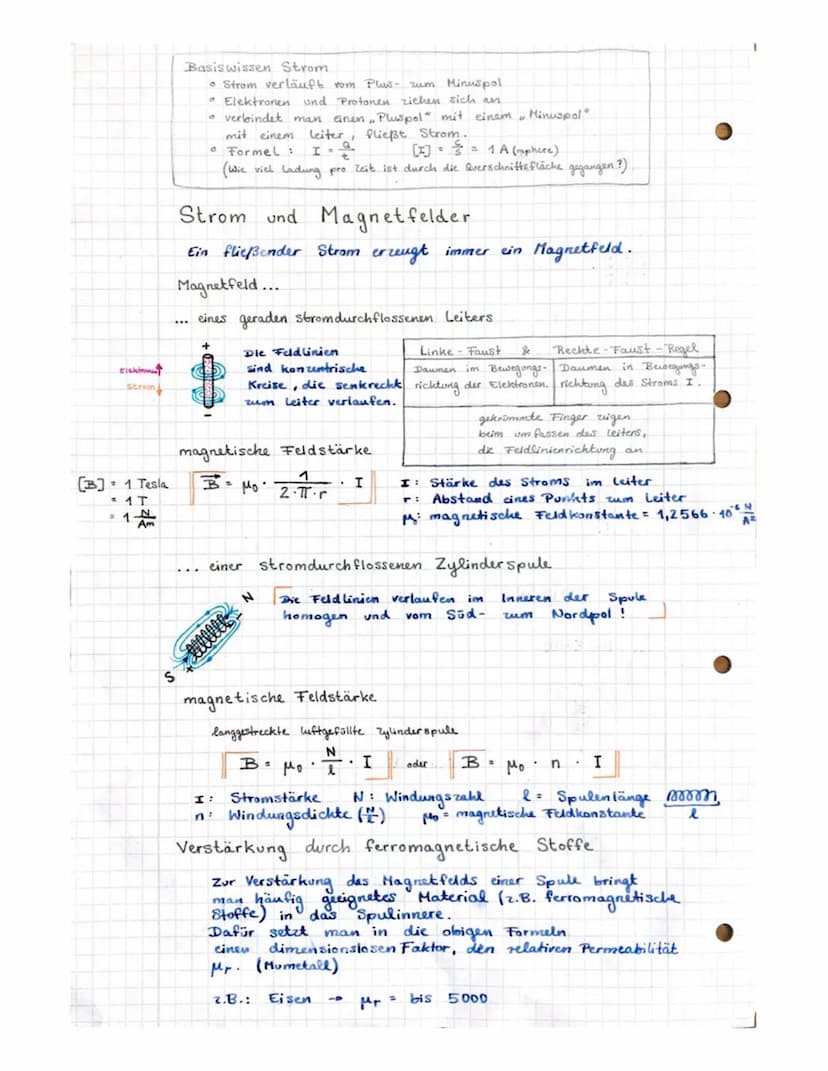 Basiswissen Strom
° Strom verläuft vom Plus- zum Minuspol
° Elektronen und Protonen ziehen sich an
° verbindet man einen „Pluspol" mit einem „Minuspol"
mit einem Leiter, fließt Strom.
° Formel: I = Q/t [I] = C/s = 1 A (mphere)
(Wie viel Ladung pro Zeit ist durch die Querschnittsfläche gegangen?)
Strom und Magnetfelder
Ein fließender Strom erzeugt immer ein Magnetfeld.
Magnetfeld ...
... eines geraden stromdurchflossenen Leiters
+
Elektronen ↑
Strom ↓
-
Die Feldlinien
sind konzentrische
Kreise, die senkrecht
zum Leiter verlaufen.
Linke-Faust & Rechte-Faust-Regel
Daumen im Bewegungs-
richtung der Elektronen.
Daumen in Bewegungs-
richtung des Stroms I.
gekrümmte Finger zeigen
beim umfassen des Leiters,
die Feldlinienrichtung an
magnetische Feldstärke
[B] = 1 Tesla
= 1 T
= 1 N/Am
B⃗ = μ₀ · 1/(2·π·r) · I
I: Stärke des Stroms im Leiter
r: Abstand eines Punkts zum Leiter
μ₀: magnetische Feldkonstante = 1,2566 · 10⁻⁶ N/A²
... einer stromdurchflossenen Zylinderspule
N
-
+
S
Die Feldlinien verlaufen im Inneren der Spule
homogen und vom Süd- zum Nordpol!
magnetische Feldstärke
langgestreckte luftgefüllte Zylinderspule
B = μ₀ · N/l · I oder B = μ₀ · n · I
I: Stromstärke N: Windungszahl l = Spulenlänge
l
n: Windungsdichte (N/l) μ₀ = magnetische Feldkonstante
Verstärkung durch ferromagnetische Stoffe
Zur Verstärkung des Magnetfelds einer Spule bringt
man häufig geeignetes Material (z.B. ferromagnetische
Stoffe) in das Spulinnere.
Dafür setzt man in die obigen Formeln
einen dimensionslosen Faktor, den relativen Permeabilität
μᵣ. (Mumetall)
z.B.: Eisen → μᵣ = bis 5000